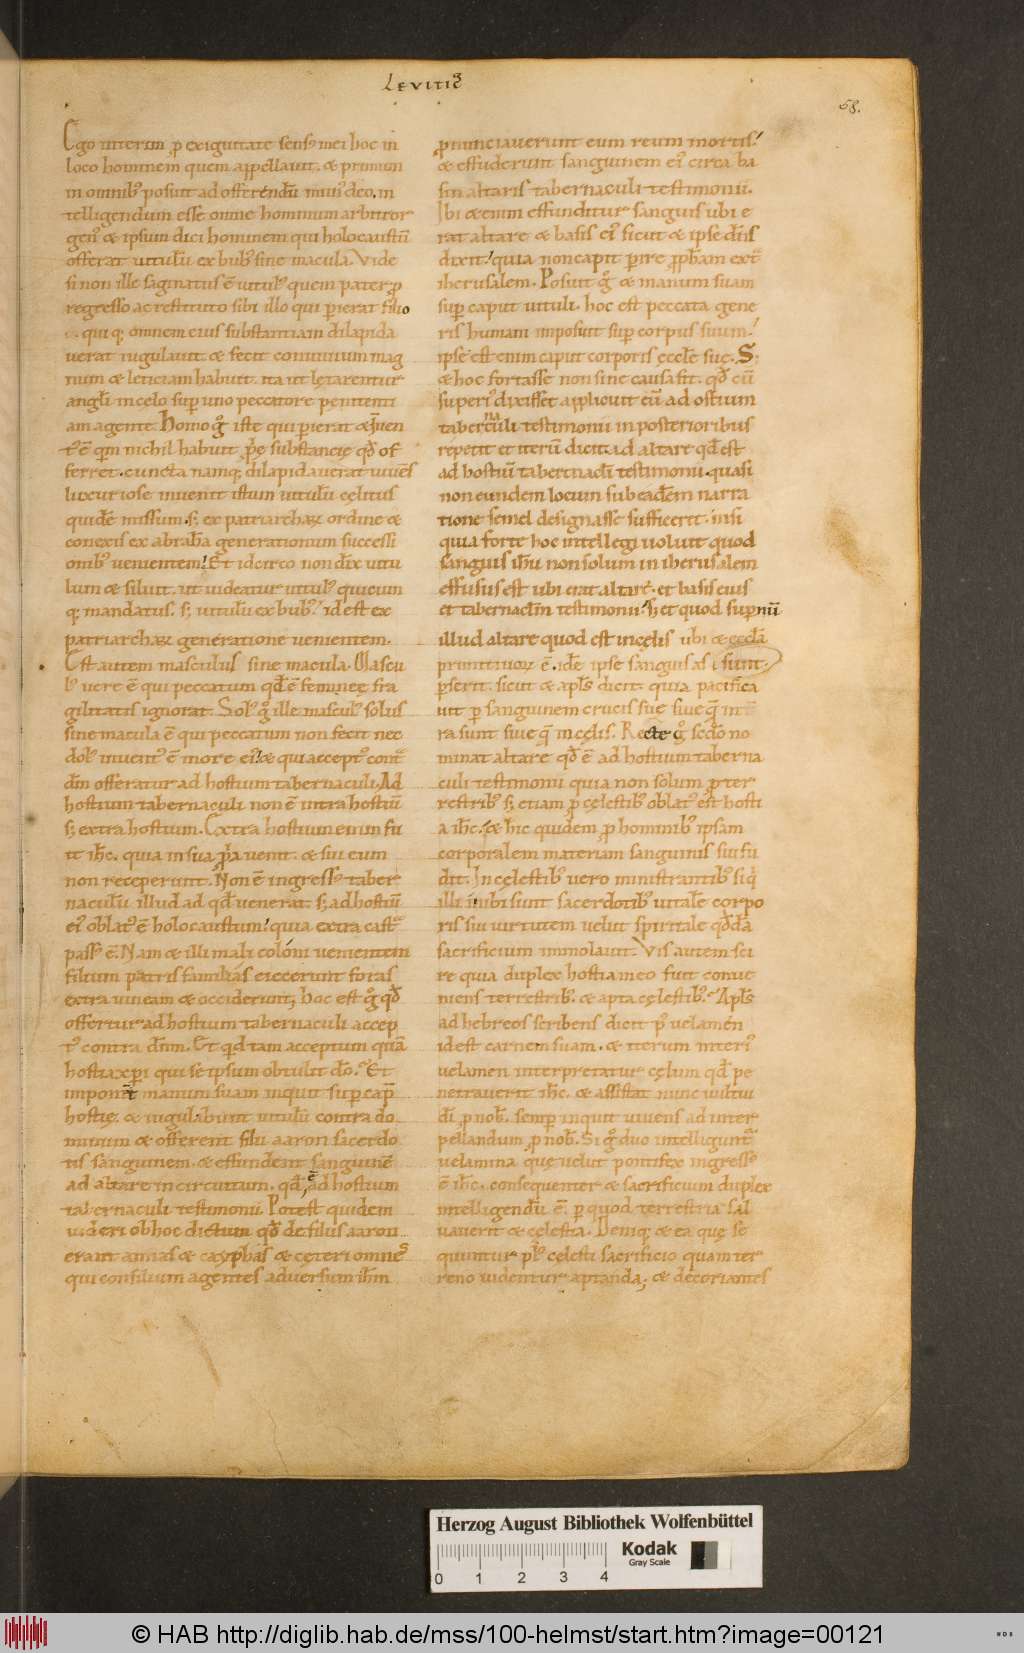 Leviticꝰ
68.
Ego interim ꝓ exiguitate sensꝰ mei hoc in
loco hominem quem appellauit. & primum
in omnibꝰ posuit ad offerendū munꝰ deo. in
telligendum esse omne hominum arbitror
genꝰ & ipsum dici hominem qui holocaustū
offerat uitulū ex bubꝰ sine macula. Vide
si non ille saginatus ē uitulꝰ quem pater ꝓ
regresso ac restituto sibi illo qui perierat filio
qui q; omnem eius substantiam dilapida
uerat iugulauit & fecit conuiuium mag
num & leticiam habuit. ita ut lętarentur
angli in cęlo super uno peccatore penitenti
am agente. Homo gͦ iste qui perierat & īuen
tꝰ ē qm nichil habuit ꝓprię substancię qd̄ of
ferret. cuncta namq; dilapidauerat uiuēs
luxuriose inuenit istum uitulū cęlitus
quidē missum. s; ex patriarchaꝝ ordine &
conexis ex abrahā generationum successi
onibꝰ uenientem. Et idcirco non dix uitu
lum & siluit. ut uideatur uitulꝰ quicun
q; mandatus. s; uitulū ex bubꝰ. id est ex
patriarchaꝝ generatione uenientem.
Est autem masculus sine macula. Mascu
lꝰ uere ē qui peccatum qd̄ ē femineę fra
gilitatis ignorat. Solꝰ gͦ ille masculꝰ solus
sine macula ē qui peccatum non fecit nec
dolꝰ inuentꝰ ē in ore eiꝰ. & qui acceptꝰ cont
dn̄m offeratur ad hostium tabernaculi. Ad
hostium tabernaculi non ē intra hostiū
s; extra hostium. Extra hostium enim fu
it ih̄c. quia in sua ꝓpria uenit. & sui eum
non receperunt. Non ē ingressꝰ taber
naculū illud ad qd̄ uenerat. s; ad hostiū
eiꝰ oblatꝰ ē holocaustum. quia extra cast
passꝰ ē. Nam & illi mali coloni uenientem
filium patris familias eiecerunt foras
extra uineam & occiderunt, hoc est gͦ qd̄
offertur ad hostium tabernaculi accep
tꝰ contra dn̄m. Et qd tam acceptum quā
hostia xp̄i qui se ipsum obtulit dō. Et
imponet manum suam inquit super caput
hostię. & iugulabunt uitulū contra do
minum & offerent filii aaron sacerdo
tis sanguinem. & effundent sanguinē
ad altare in circuitum. qd̄ ē ad hostium
tabernaculi testimonii. Potest quidem
uideri ob hoc dictum qd̄ de filiis aaron
erant annas & cayphas & cęteri omnes
qui consilium agentes aduersum ih̄m
pronunciauerunt eum reum mortis.
& effuderunt sanguinem eiꝰ circa ba
sin altaris tabernaculi testimonii.
Ibi & enim effunditur sanguis ubi e
rat altare & basis eiꝰ sicut & ipse dn̄s
dixit. quia non capit perire ꝓph̄am ext
iherusalem. Posuit gͦ & manum suam
super caput uituli. hoc est peccata gene
ris humani imposuit super corpus suum.
ipse est enim caput corporis ęccle suę. S;
& hoc fortasse non sine causa fit. qd̄ cū
superiꝰ dixisset applicuit eū ad ostium
tabernaculi testimonii in posterioribus
repetit et iterū dicit. ad altare qd̄ est
ad hostiū tabernacl̄i testimonii. quasi
non eundem locum sub eadem narra
tione semel designasse sufficerit. nisi
quia forte hoc intellegi uoluit quod
sanguis ih̄u non solum in iherusalem
effusus est ubi erat altare. et basis eius
et tabernacl̄m testimonii. s; et quod supernū
illud altare quod est in cęlis ubi & ęccla
primitiuoꝝ ē. idē ipse sanguis asꝑserit sunt.
ꝑserit. sicut & apls dicit. quia pacifica
uit per sanguinem crucis suę siue quę in ter
ra sunt siue quę in cęlis. Recte gͦ scdo no
minat altare qd̄ ē ad hostium taberna
culi testimonii quia non solum pro ter
restribꝰ s; etiam ꝓ cęlestibꝰ oblatꝰ est hosti
a ih̄c. & hic quidem ꝓ hominibꝰ ipsam
corporalem materiam sanguinis sui fu
dit. In cęlestibꝰ uero ministrantibꝰ siq
illi inibi sunt sacerdotibꝰ uitale corpo
ris sui uirtutem uelut spiritale qd̄dā
sacrificium immolauit. Vis autem sci
re quia duplex hostia in eo fuit conue
niens terrestribꝰ. & apta cęlestibꝰ. Apls
ad hebreos scribens dicit per uelamen
id est carnem suam. & iterum interiꝰ
uelamen interpretatur cęlum qd̄ pe
netrauerit ih̄c. & assistat nunc uultui
dī ꝓ nob̄. semper inquit uiuens ad inter
pellandum ꝓ nob̄. Si gͦ duo intelligunt
uelamina quę uelut pontifex ingressꝰ
ē ih̄c. consequenter & sacrificium duplex
intelligendū ē. per quod terrestria sal
uauerit & cęlestia. Deniq; & ea quę se
quntur plꝰ cęlesti sacrificio quam ter
reno uidentur aptanda; & decoriantes
Herzog August Bibliothek Wolfenbüttel
0 1 2 3 4
Kodak
Gray Scale
© HAB http://diglib.hab.de/mss/100-helmst/start.htm?image=00121